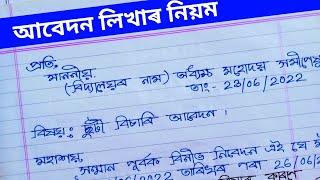 আবেদন লিখাৰ নিয়ম
প্ৰতি,
মাননীয়,
(বিদ্যালয়ৰ নাম) অধ্যক্ষ মহোদয় সমীপেষু
তাং- 23/06/2022
বিষয়: ছুটী বিচাৰি আবেদন।
মহাশয়,
সন্মান পূৰ্বক বিনীত নিবেদন এই যে
/06/2022 তাৰিখৰ পৰা 26/06/2
কাৰণ